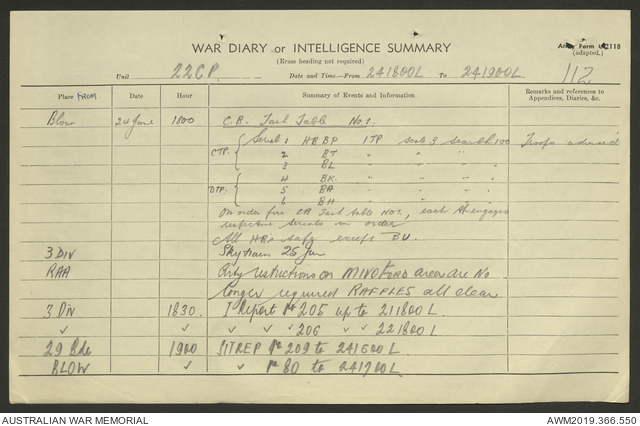 WAR DIARY or INTELLIGENCE SUMMARY
(Erase heading not required)
Army Form C2118
(adapted.)
Unit 22 C.P. Date and Time.—From 241800L To 241900L 112
Place FROM Date Hour Summary of Events and Information Remarks and references to Appendices, Diaries, &c.
Blow 24 June 1800 C.B. Task Table No 1.
CTP. Serial 1 HB BP 1TP scale 3 search 100 Troops advised
2 BT " " " "
3 BL " " " "
DTP. 4 BK " " " "
5 BA " " " "
6 BH " " " "
On order fire CB Task table No 1, each engages
respective serials in order
All HB's safe except BU.
3 DIV Skytrain 25 Jun
RAA Arty restrictions on area are No
longer required RAFFLES all clear
3 Div 1830. I Report No 205 up to 211800L.
✓ ✓ " " ✓ 206 " ✓ 221800L
29 Bde 1900 SITREP No 209 to 241600L
BLOW ✓ ✓ No 80 to 241700L.
AUSTRALIAN WAR MEMORIAL
AWM2019.366.550